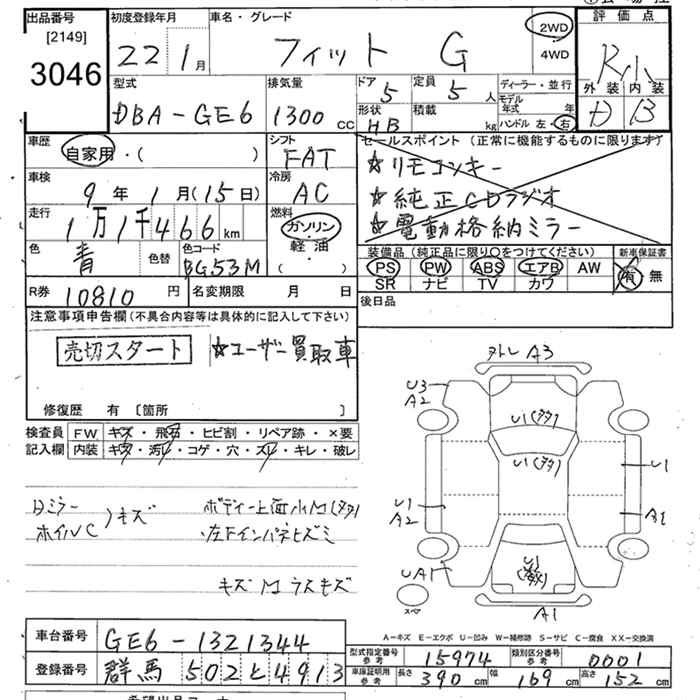 出品番号 初度登録年月 車名・グレード 評価点
[2149]
3046
22 1月 フィット G 2WD 4WD R小
型式 排気量 ドア 5 定員 5人 ディーラー・並行 外装 内装
DBA-GE6 1300cc 形状 HB 積載 kg モデル年式 年 D B
ハンドル 左・右
車歴 自家用・( ) シフト FAT
セールスポイント (正常に機能するものに限ります)
☆リモコンキー
☆純正CDラジオ
☆電動格納ミラー
車検 9年1月(15日) 冷房 AC
走行 1万1千466km 燃料 ガソリン・軽油 ( )
色 青 色替 色コード BG53M
装備品 (純正品に限り○をつけてください) 新車保証書
PS PW ABS エアB AW 有 無
SR ナビ TV カワ
R券 10810円 名変期限 月 日
後日品
注意事項申告欄 (不具合内容等は具体的に記入して下さい)
売切スタート ☆ユーザー買取車
修復歴 有 〔箇所 〕
検査員 FW キズ・飛石・ヒビ割・リペア跡・×要
記入欄 内装 キズ・汚れ・コゲ・穴・スレ・キレ・破レ
ミラー
ホイルC キズ
ボディー上面小M(タタ)
左Fインパネヒズミ
キズM ラスキズ
A3
U3
A2
U1(タタ)
U1(タタ)
U1
U1
A2
A1
UA1
U1
A1
スペア
A-キズ E-エクボ U-凹み W-補修跡 S-サビ C-腐食 XX-交換済
車台番号 GE6-1321344
登録番号 群馬 502 と 4913
型式指定番号 参考 15974 類別区分番号 参考 0001
車庫証明用 参考 長さ 390cm 幅 169cm 高さ 152cm